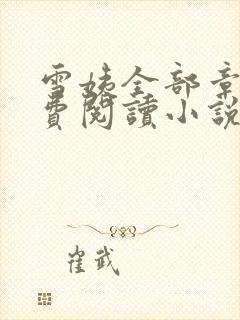 雪姨全部章
費閱讀小說
崔武